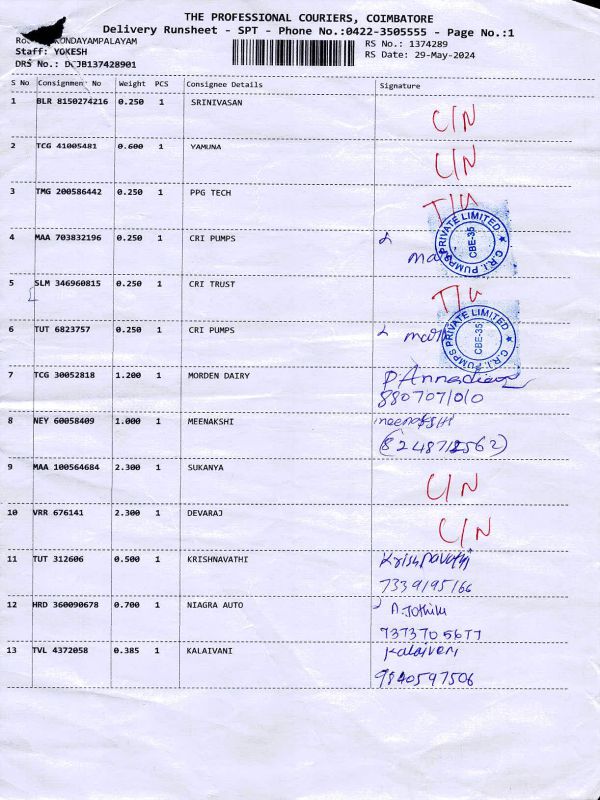 THE PROFESSIONAL COURIERS, COIMBATORE
Delivery Runsheet - SPT - Phone No.:0422-3505555 - Page No.:1
KONDAYAMPALAYAM RS No.: 1374289
Staff: YOKESH RS Date: 29-May-2024
DRS No.: DCJB137428901
S No Consignment No Weight PCS Consignee Details Signature
1 BLR 8150274216 0.250 1 SRINIVASAN C/N
2 TCG 41005481 0.600 1 YAMUNA C/N
3 TMG 200586442 0.250 1 PPG TECH
4 MAA 703832196 0.250 1 CRI PUMPS
C.R.I. PUMPS PRIVATE LIMITED
CBE-35
5 SLM 346960815 0.250 1 CRI TRUST
6 TUT 6823757 0.250 1 CRI PUMPS
C.R.I. PUMPS PRIVATE LIMITED
CBE-35
7 TCG 30052818 1.200 1 MORDEN DAIRY
8807071010
8 NEY 60058409 1.000 1 MEENAKSHI
9 MAA 100564684 2.300 1 SUKANYA C/N
10 VRR 676141 2.300 1 DEVARAJ C/N
11 TUT 312606 0.500 1 KRISHNAVATHI Krishnavathi
7339195166
12 HRD 360090678 0.700 1 NIAGRA AUTO
7373705677
13 TVL 4372058 0.385 1 KALAIVANI Kalaivani
9840597506